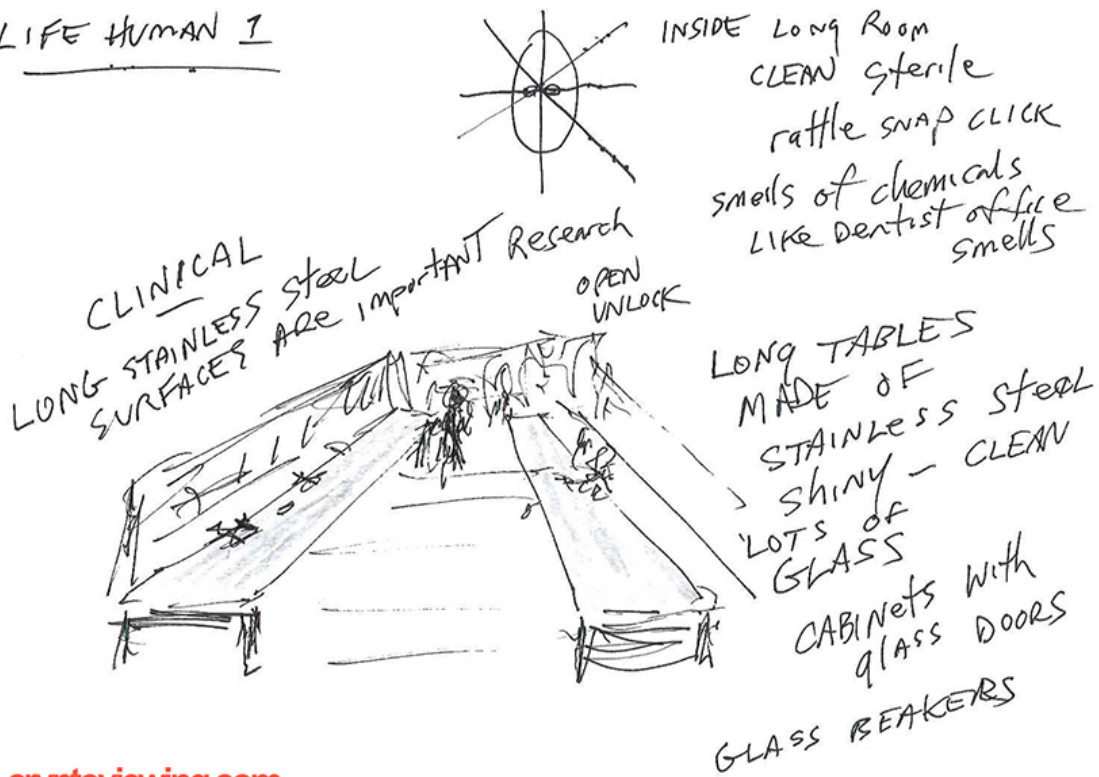 LIFE HUMAN 1
INSIDE LONG ROOM
CLEAN sterile
rattle SNAP CLICK
smells of chemicals
LIKE Dentist office
smells
CLINICAL
LONG STAINLESS steel
SURFACES ARE important Research
OPEN
UNLOCK
LONG TABLES
MADE OF
STAINLESS steel
shiny - CLEAN
LOTS OF
GLASS
CABINETS with
glASS DOORS
GLASS BEAKERS
cryptoviewing.com